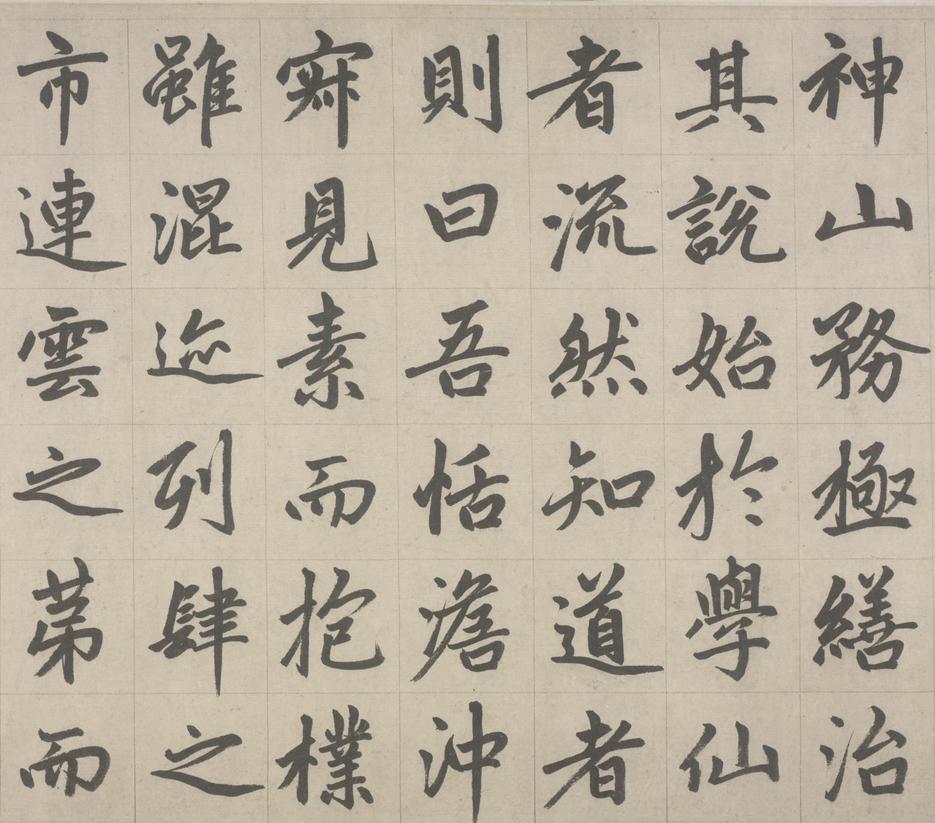 神山務極繕治
其說始於學仙
者流然知道者
則曰吾恬澹沖
寂見素而抱樸
雖混迹列肆之
市連雲之苐而